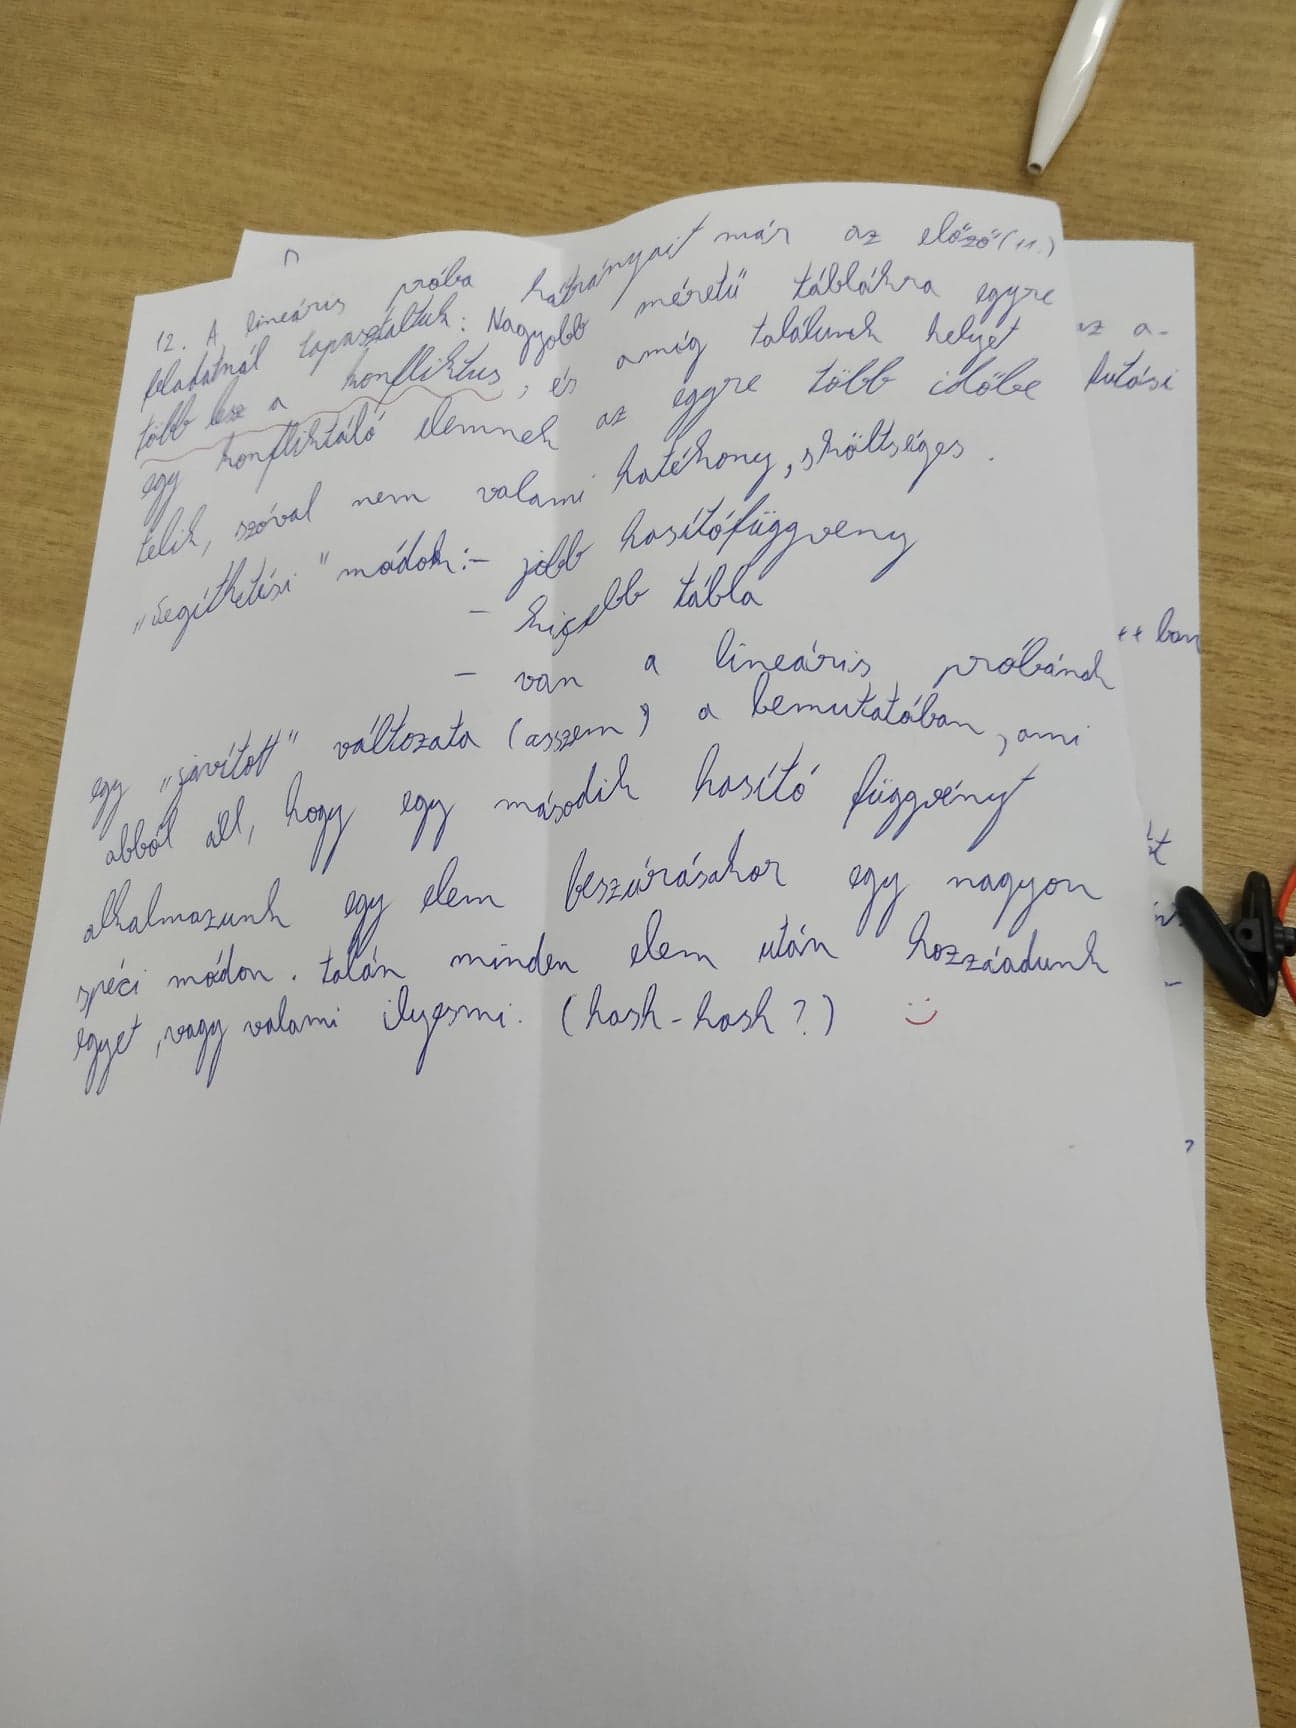 12. A lineáris próba hátrányait már az előző (11.)
feladatnál tapasztaltuk: Nagyobb méretű táblákra egyre
több lesz a konfliktus, és amíg találunk helyet
egy konfliktáló elemnek az egyre több időbe
telik, szóval nem valami hatékony, s költséges.
„segíthetési" módok: - jobb hasítófüggveny
- kissebb tábla
- van a lineáris próbának
egy „javított" változata (asszem) a bemutatóban, ami
abból áll, hogy egy második hasító függvényt
alkalmazunk egy elem beszúrásakor egy nagyon
spéci módon. talán minden elem után hozzáadunk
egyet, vagy valami ilyesmi. (hash-hash?)
az a-
futási
++ ban